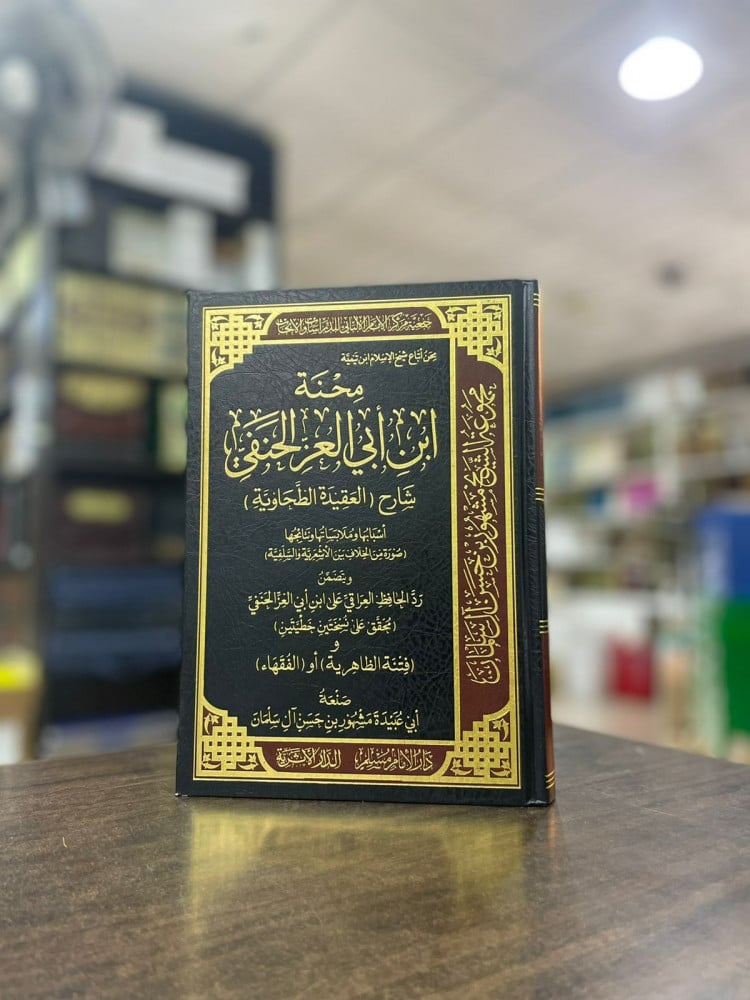 جمعية مركز الإمام الألباني للدراسات والأبحاث
مِحَن أتباع شيخ الإسلام ابن تيمية
مِحْنَة
ابْنِ أَبِي الْعِزِّ الحَنَفِيِّ
شَارِحِ (العَقِيدَة الطَّحَاوِيَة)
أسْبَابُهَا وَمُلَابَسَاتُهَا وَنَتَائِجُهَا
(صُورَة مِنَ الخِلَافِ بَيْنَ الأَشْعَرِيَّة وَالسَّلَفِيَّة)
وَيَتَضَمَّنُ
رَدَّ الحَافِظِ العِرَاقِيِّ عَلَى ابْنِ أَبِي العِزِّ الحَنَفِيِّ
(مُحَقَّق عَلَى نُسْخَتَيْنِ خَطِّيَّتَيْنِ)
وَ
(فِتْنَة الظَّاهِرِيَة) أو (الفُقَهَاء)
صَنْعَةُ
أَبِي عُبَيْدَةَ مَشْهُور بن حَسَن آل سَلْمَان
دار الإمام مسلم
الدار الأثرية
مجموعة الشيخ مشهور بن حسن آل سلمان